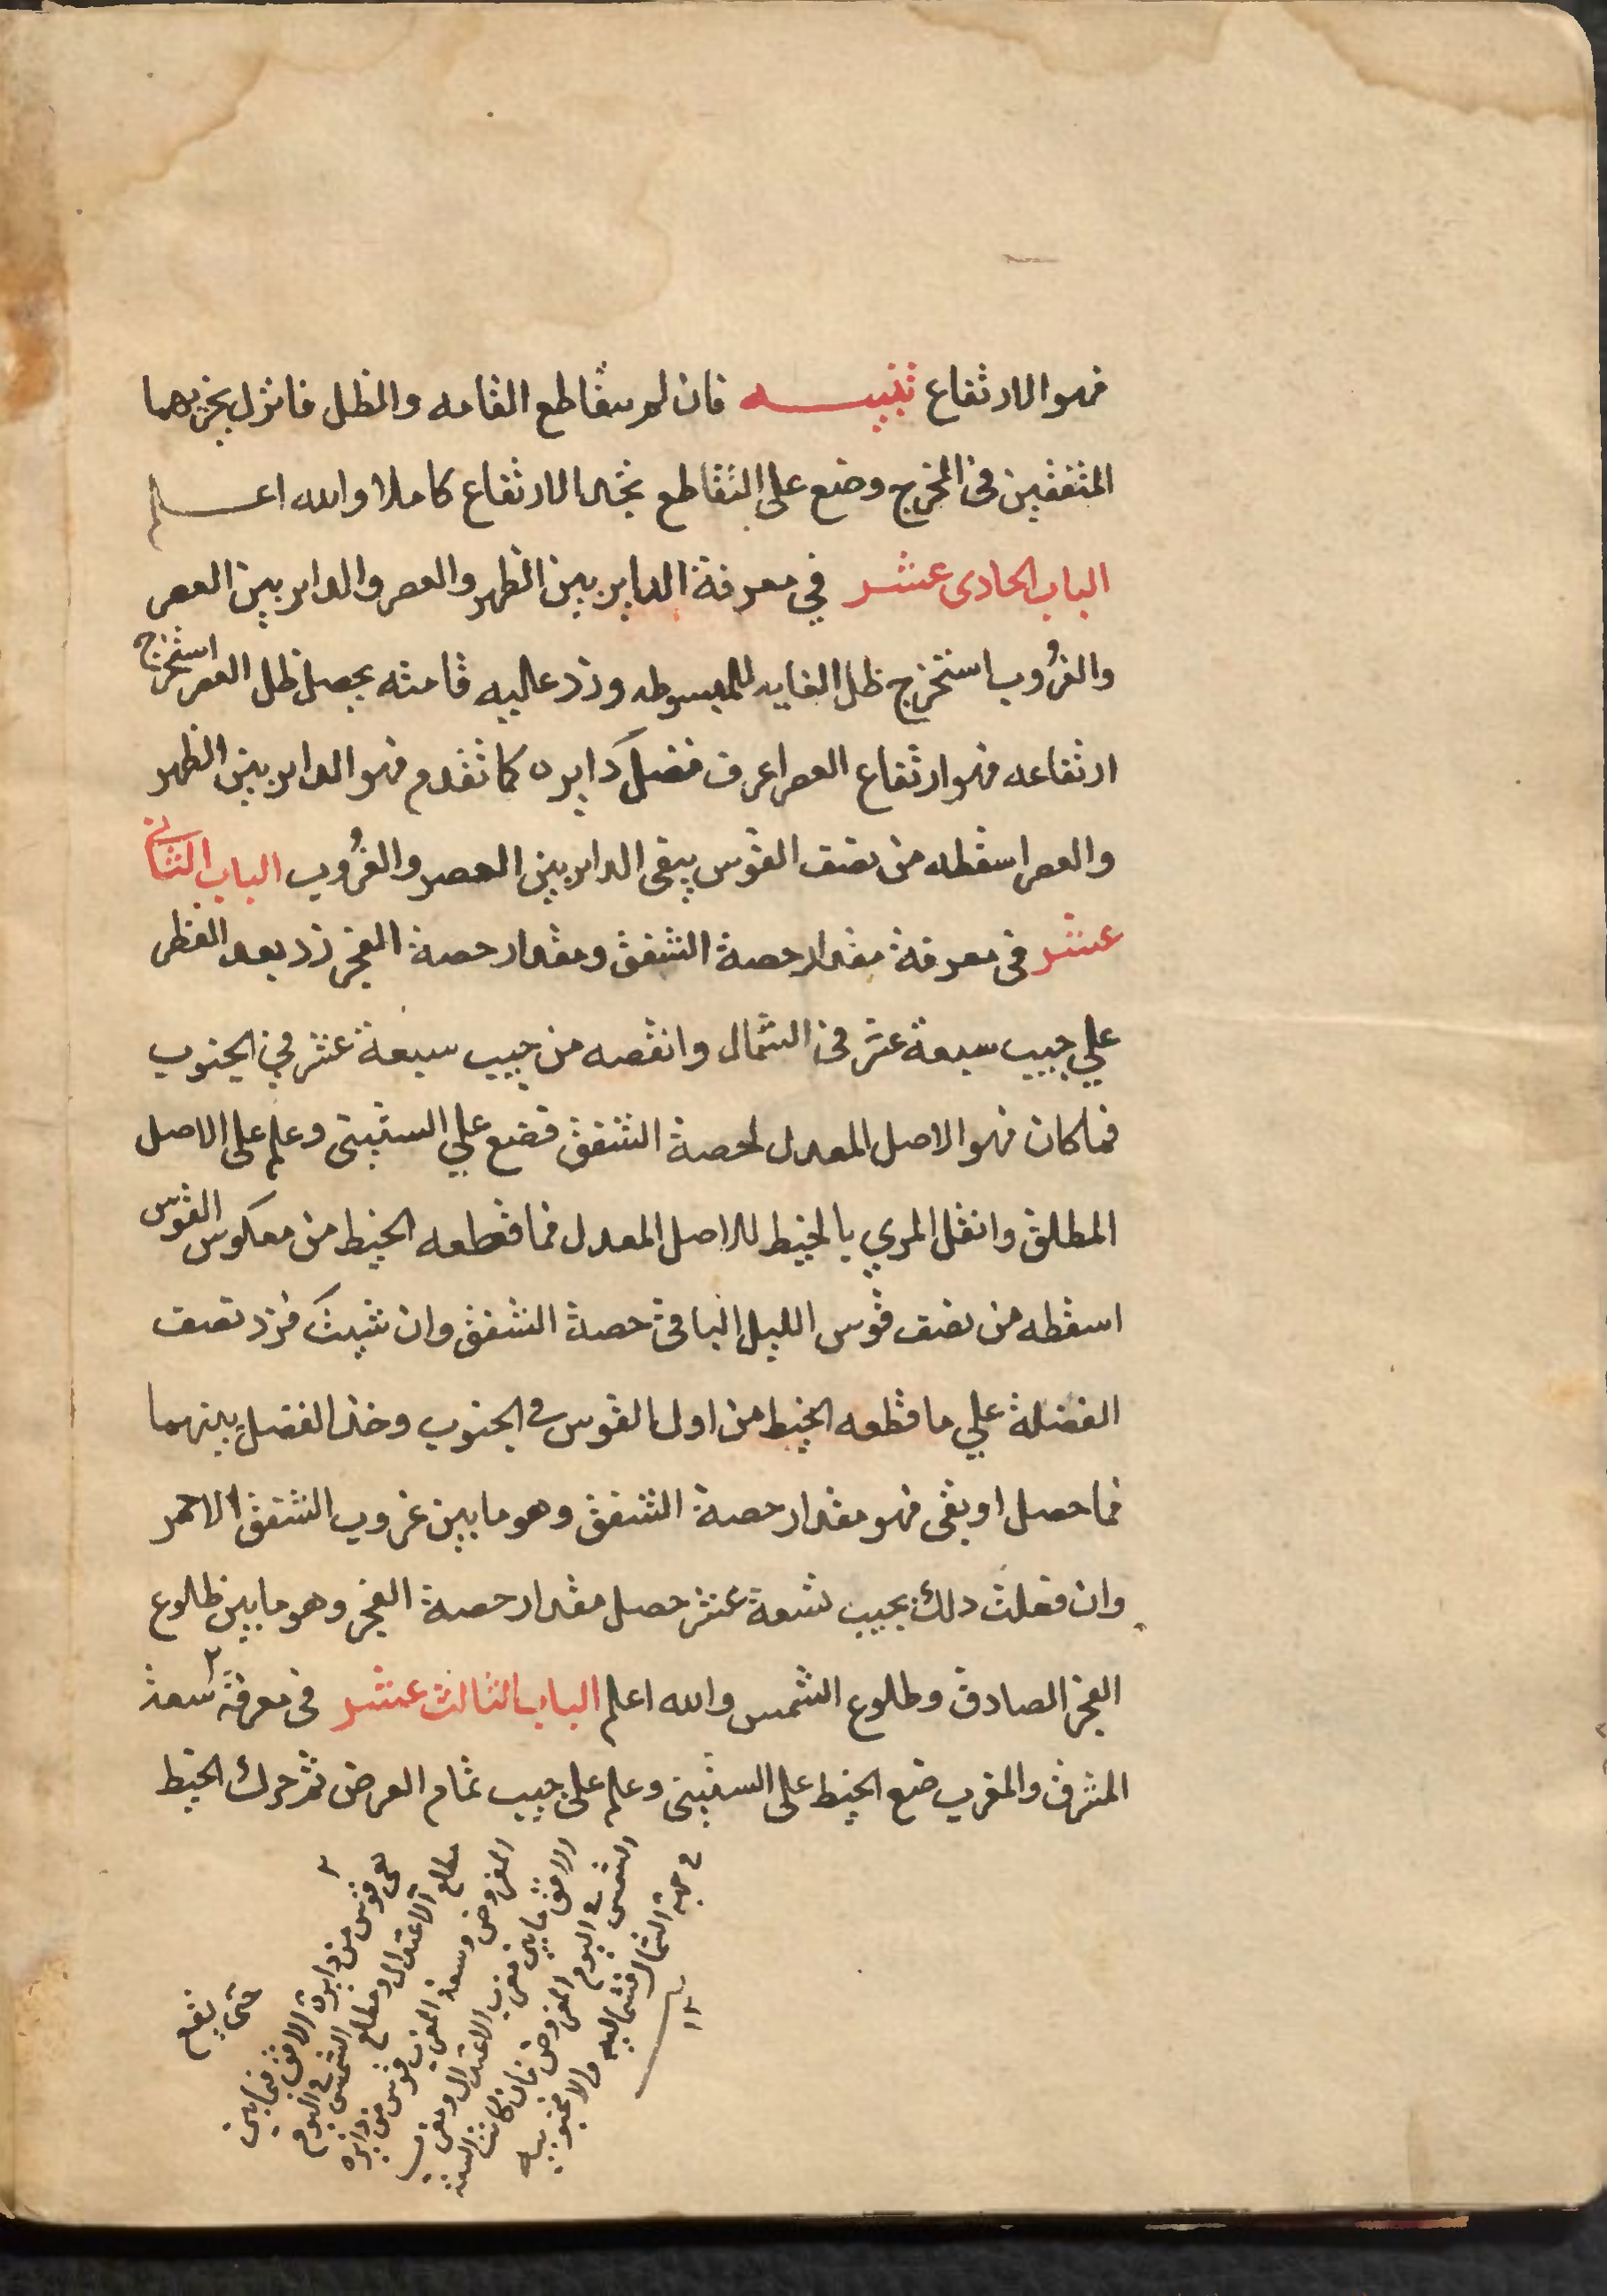 فهو الارتفاع تنبيه فان لم يتقاطع القامه والظل فانزل بجزيهما
المتفقين في المخرج وضع على التقاطع تجد الارتفاع كاملا والله اعلم
الباب الحادى عشر في معرفة الداير بين الظهر والعصر والداير بين العصر
والغُروب استخرج ظل الغايه المبسوطه وزد عليه قامته يحصل ظل العصر استخرج
ارتفاعه فهو ارتفاع العصر اعرف فضل دايره كما تقدم فهو الداير بين الظهر
والعصر اسقطه من نصف القوس يبقى الداير بين العصر والغُروب الباب الثانى
عشر فى معرفة مقدار حصة الشفق ومقدار حصة الفجر زد بعد القطر
علي جيب سبعة عشر فى الشمال وانقصه من جيب سبعة عشر في الجنوب
فما كان فهو الاصل المعدل لحصة الشفق فضع علي الستينى وعلم على الاصل
المطلق وانقل المري بالخيط للاصل المعدل فما قطعه الخيط من معكوس القوس
اسقطه من نصف قوس الليل الباقى حصة الشفق وان شيت فزد نصف
الفضلة علي ما قطعه الخيط من اول القوس في الجنوب وخذ الفضل بينهما
فما حصل او بقى فهو مقدار حصة الشفق وهو ما بين غروب الشفق الاحمر
وان فعلت ذلك بجيب تسعة عشر حصل مقدار حصة الفجر وهو ما بين طلوع
الفجر الصادق وطلوع الشمس والله اعلم الباب الثالث عشر فى معرفة سعة ٢
المشرق والمغرب ضع الخيط على الستينى وعلم على جيب تمام العرض ثم حرك الخيط
حتى يقع
٢ هى قوس من دايرة الافق فيما بين
مطلع الاعتدال ومطلع الشمس في اليوم
المفروض وسعة المغرب قوس من دايره
الافق ما بين مغرب الاعتدال ومغرب
الشمس في اليوم المفروض فان كانت السعة
في جهة الشمال فشماليه والا فجنوبيه